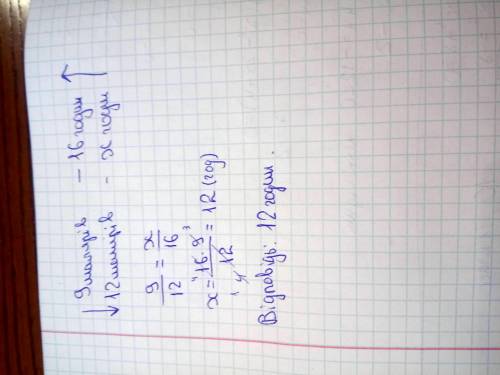 ↓ 9 малярів – 16 годин ↑
12 малярів - x годин
9/12 = x/16
x = 16·9/12 = 12 (год)
Відповідь: 12 годин.